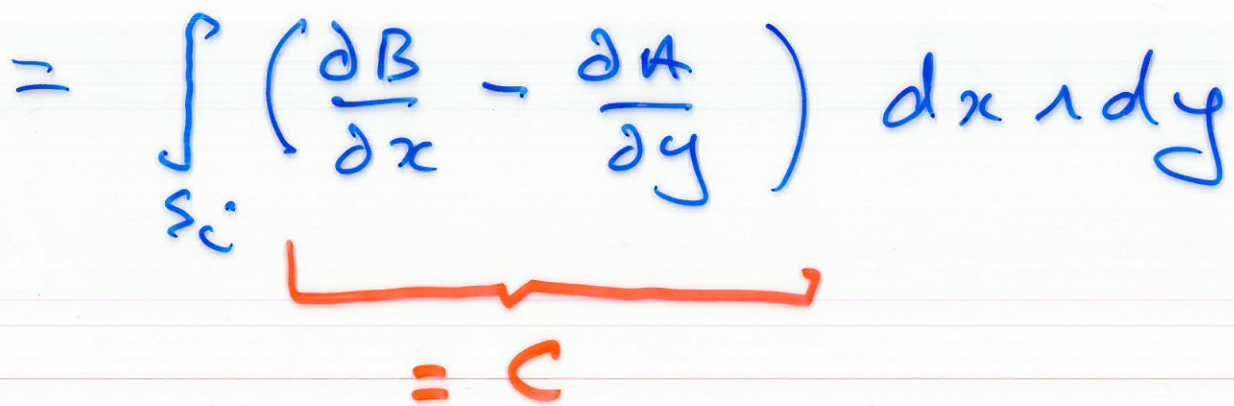 = ∫_{S_i} (∂B/∂x − ∂A/∂y) dx ∧ dy
= C